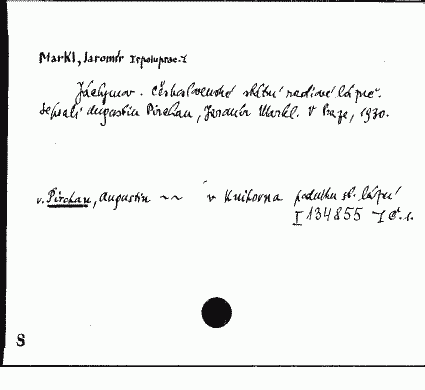 Markl, Jaromír [spoluprac.]
Jáchymov. Československé státní radiové lázně.
Sepsali Augustin Pirchan, Jaromír Markl. V Praze, 1930.
v. Pirchan, Augustin ~~ v Knihovna podniku st. lázní
I 134855 I Č. 1.
S